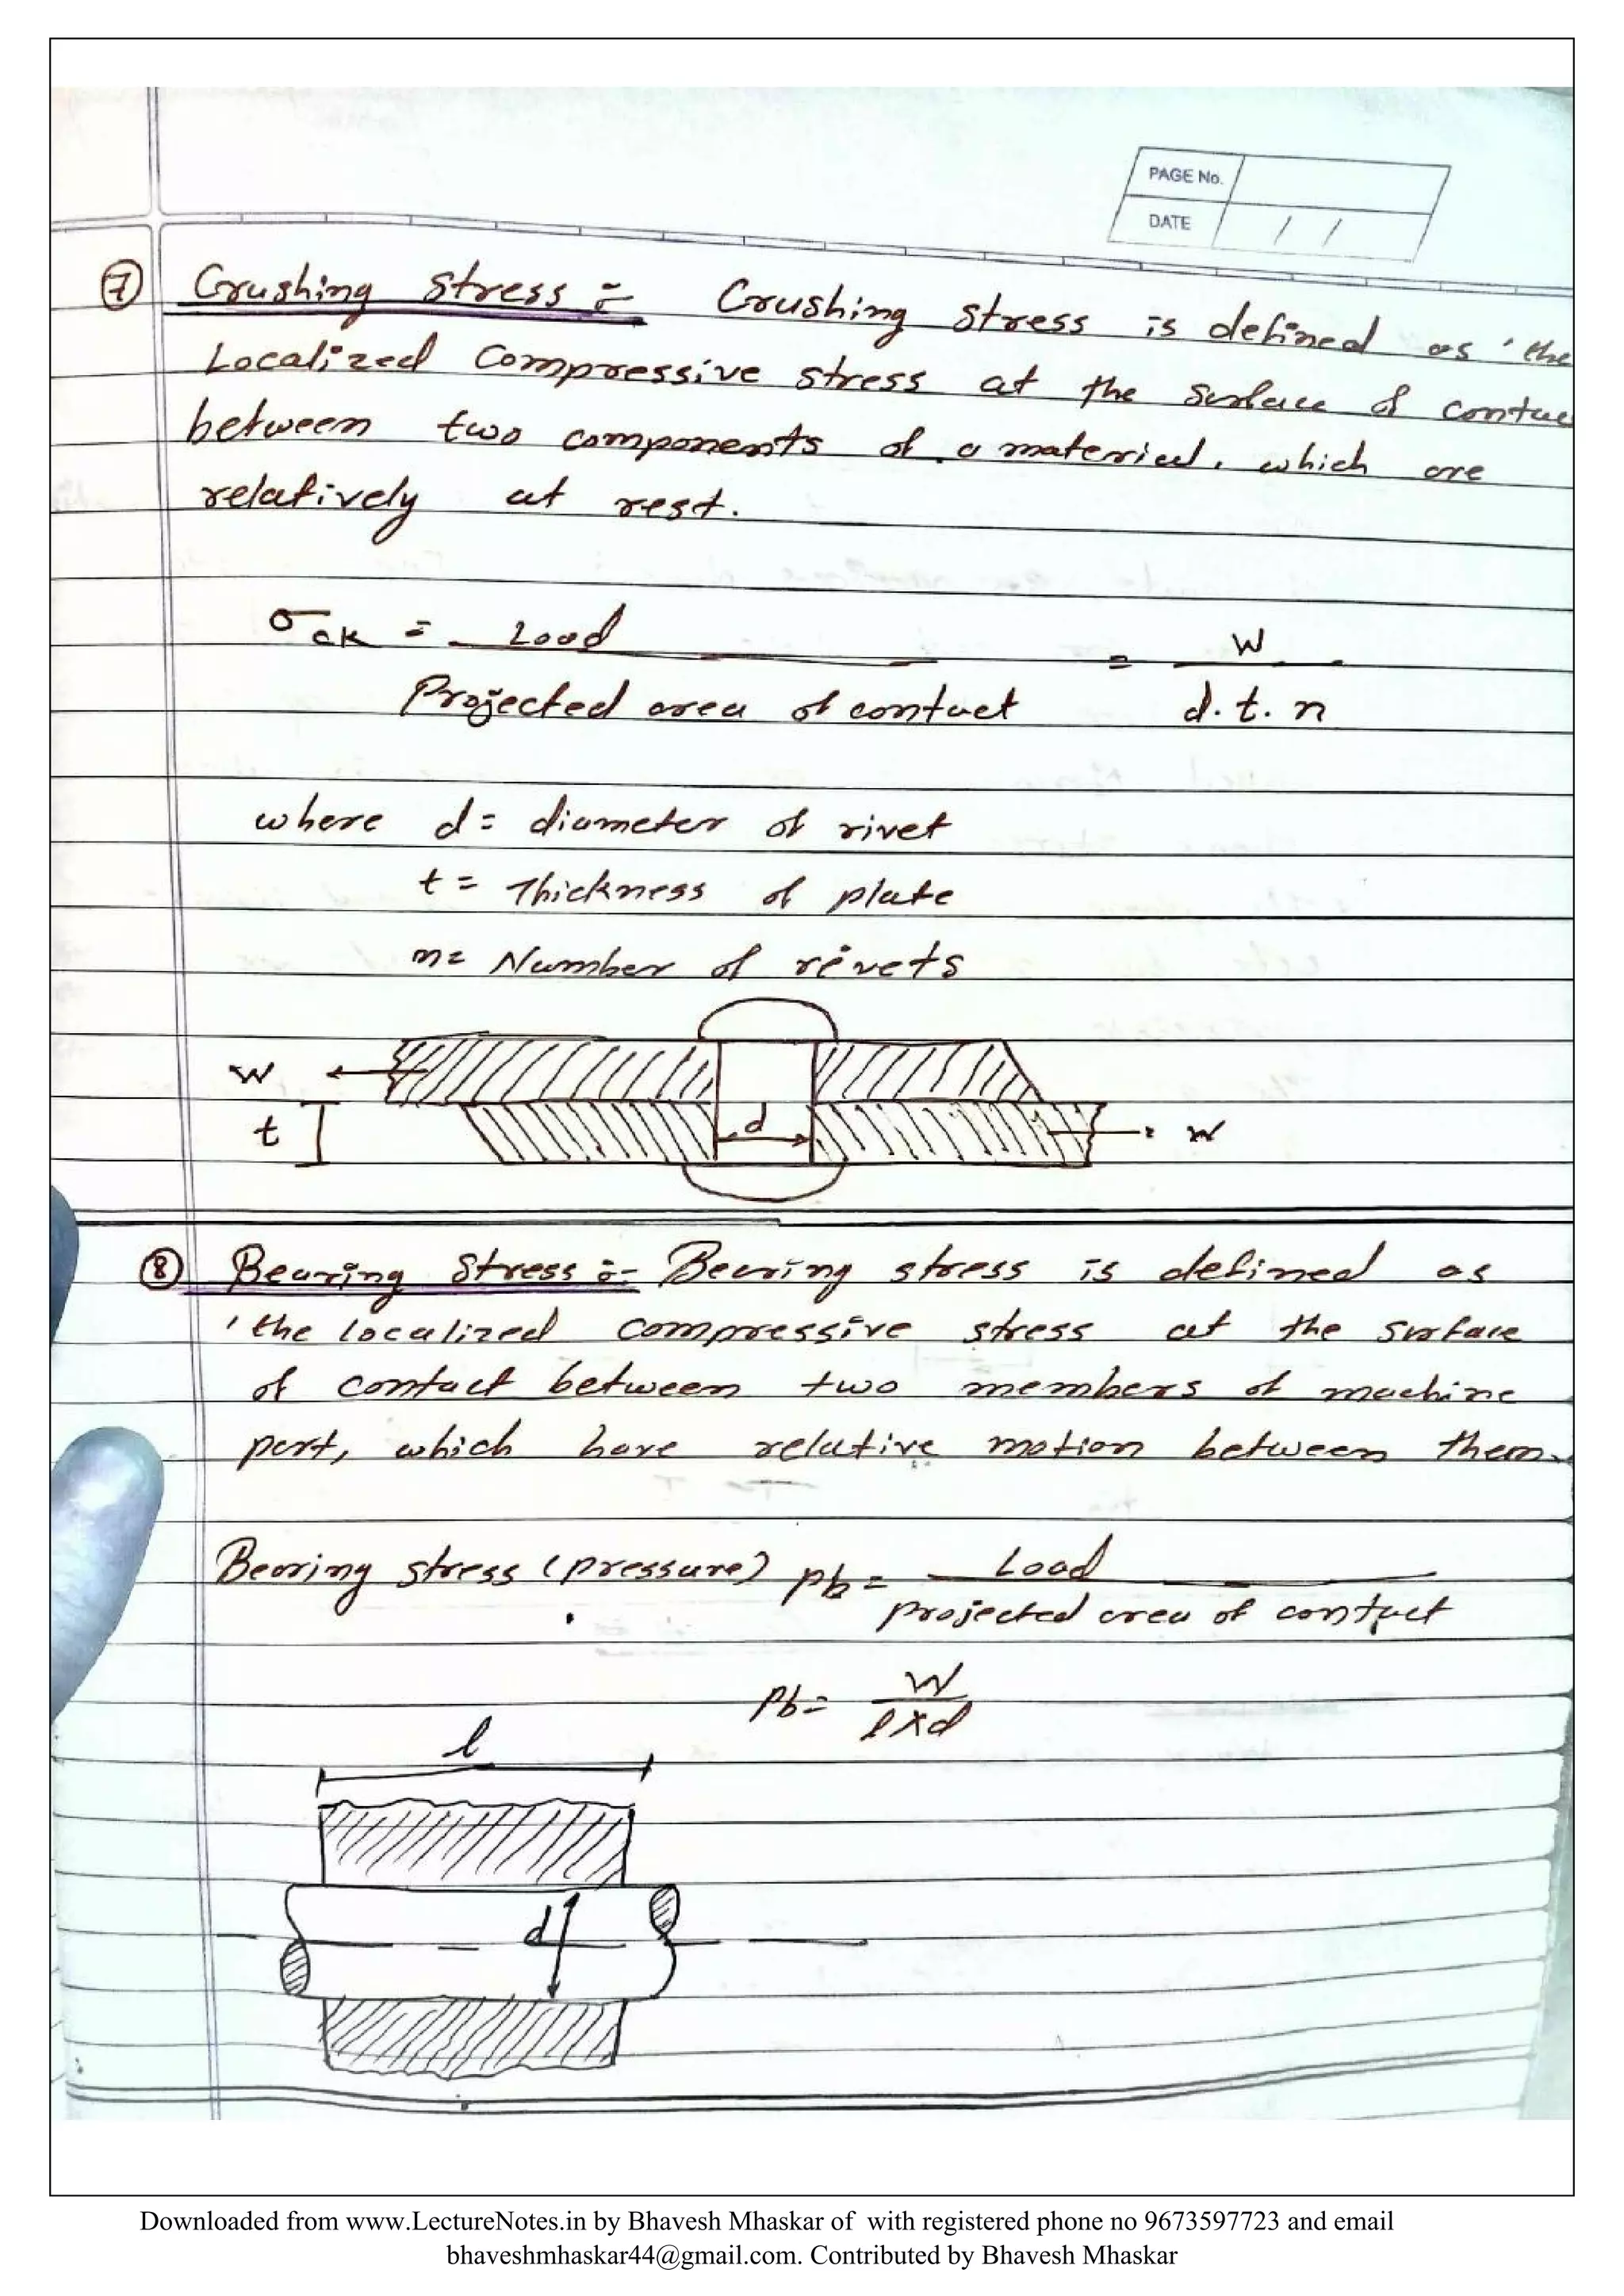 PAGE No.
DATE / /
⑦ Crushing stress :- Crushing stress is defined as 'the
Localized compressive stress at the surface of contac
between two components of a material, which are
relatively at rest.
σck = Load / Projected area of contact = W / d. t. n
where d = diameter of rivet
t = Thickness of plate
n = Number of rivets
W
t
d
W
⑧ Bearing stress :- Bearing stress is defined as
'the localized compressive stress at the surface
of contact between two members of machine
part, which have relative motion between them.
Bearing stress (pressure) Pb = Load / projected area of contact
Pb = W / l×d
l
d
Downloaded from www.LectureNotes.in by Bhavesh Mhaskar of with registered phone no 9673597723 and email
bhaveshmhaskar44@gmail.com. Contributed by Bhavesh Mhaskar